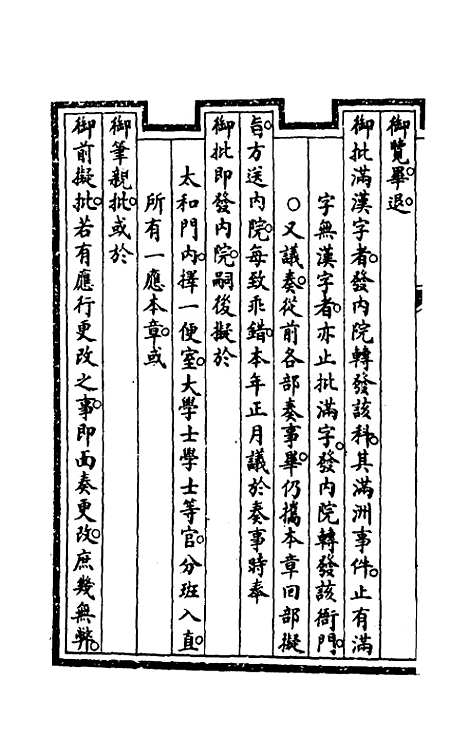 御覽畢退。
御批滿漢字者。發內院轉發該科。其滿洲事件。止有滿
字無漢字者。亦止批滿字。發內院轉發該衙門。
○又議奏。從前各部奏事畢。仍攜本章回部擬
旨。方送內院。每致乖錯。本年正月議於奏事時奉
御批即發內院。嗣後擬於
太和門內。擇一便室。大學士學士等官。分班入直。
所有一應本章。或
御筆親批。或於
御前擬批。若有應行更改之事。即面奏更改。庶幾無弊。